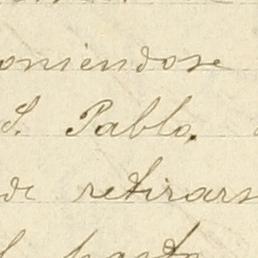 oniéndose
S. Pablo.
de retirars
l hasta